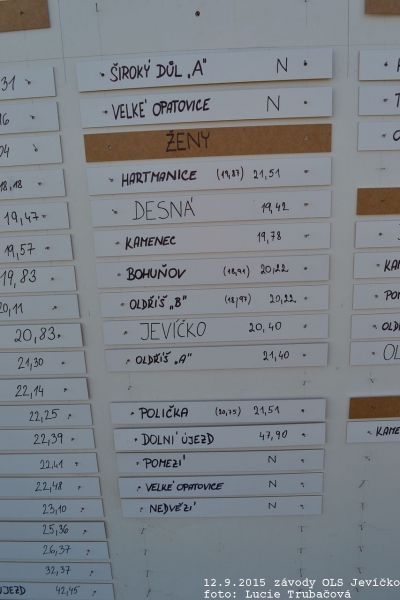 31
ŠIROKÝ DŮL „A" N
16
VELKÉ OPATOVICE N
04
ŽENY
18,18
HARTMANICE (19,87) 21,51
19,47
DESNÁ 19,42
19,57
KAMENEC 19,78
19,83
BOHUŇOV (18,91) 20,22
20,11
OLDŘIŠ „B" (18,97) 20,22
20,83
JEVÍČKO 20,40
21,30
OLDŘIŠ „A" 21,40
22,14
22,25
POLIČKA (20,75) 21,51
22,39
DOLNÍ ÚJEZD 47,90
22,41
POMEZÍ N
22,48
VELKÉ OPATOVICE N
23,10
NEDVĚZÍ N
25,36
26,37
32,37
ÚJEZD 42,45
KA
POM
OLD
OL
KAME
12.9.2015 závody OLS Jevíčko
foto: Lucie Trubačová